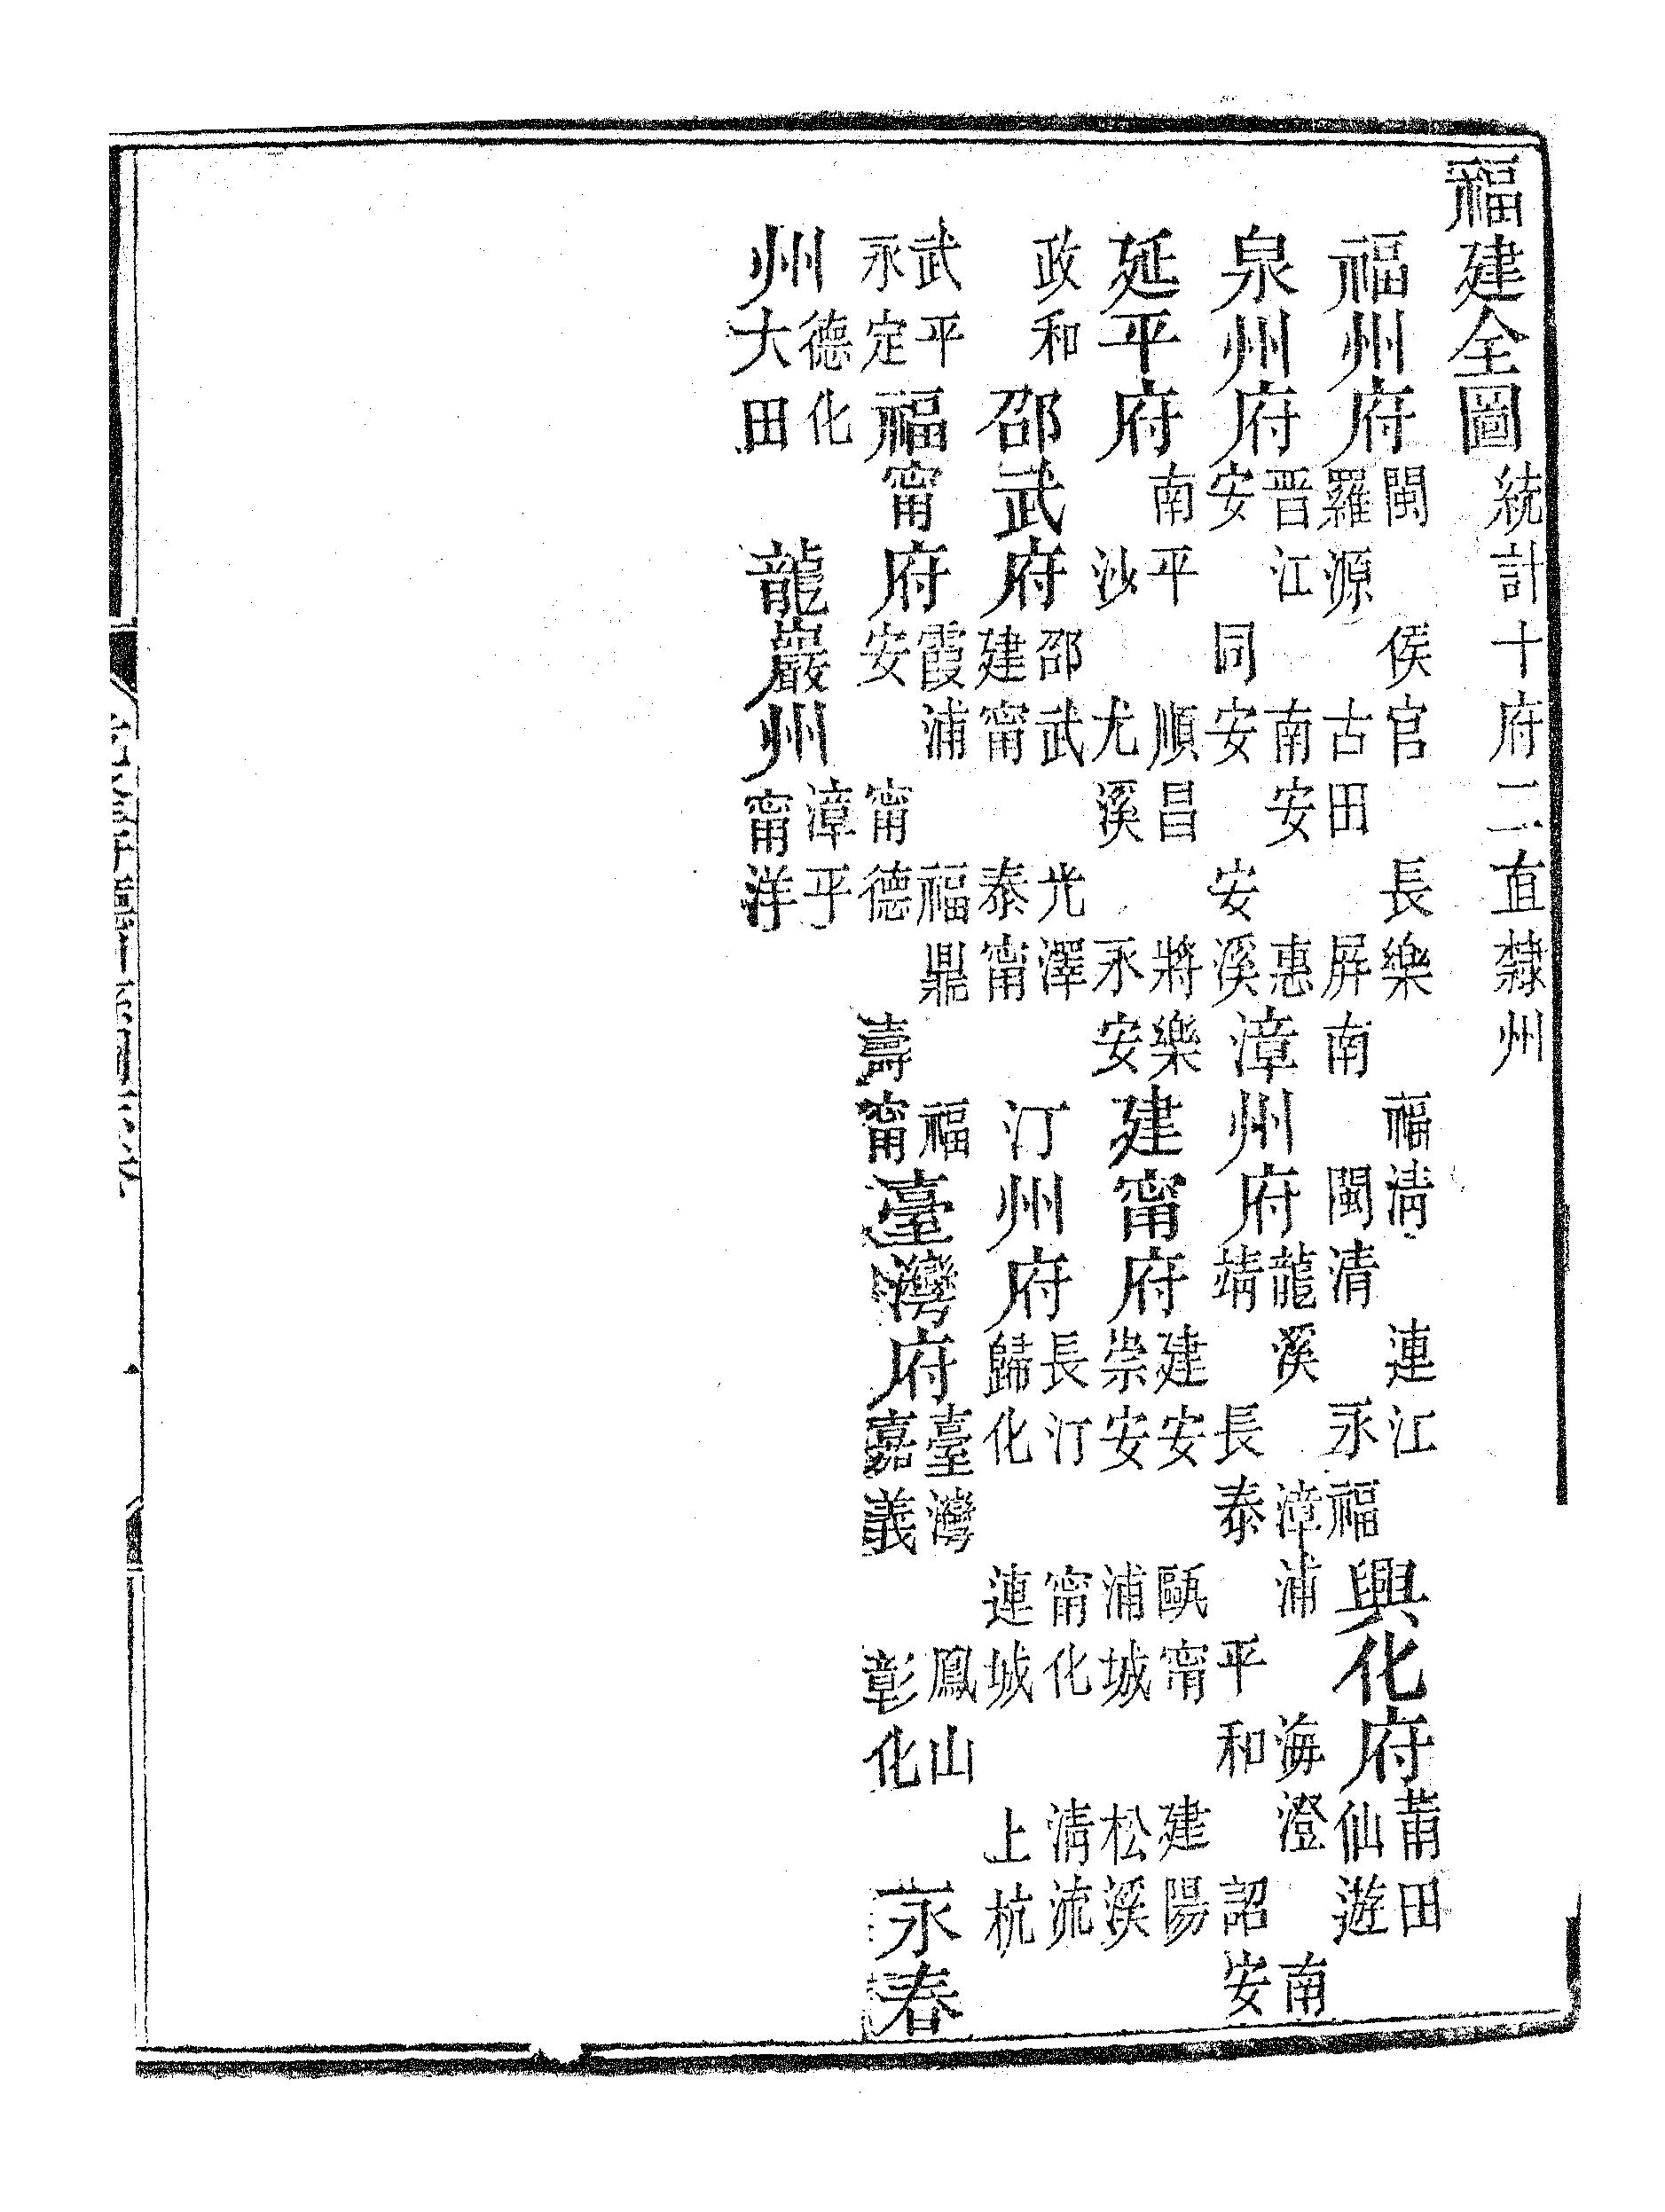 福建全圖 統計十府二直隸州
福州府 閩 侯官 長樂 福清 連江 羅源 古田 屏南 閩清 永福 興化府 莆田 仙遊
泉州府 晋江 南安 惠安 同安 安溪 漳州府 龍溪 漳浦 海澄 南靖 長泰 平和 詔安
延平府 南平 順昌 將樂 沙 尤溪 永安 建甯府 建安 甌甯 建陽 崇安 浦城 松溪
政和 邵武府 邵武 光澤 建甯 泰甯 汀州府 長汀 甯化 清流 歸化 連城 上杭
武平 永定 福甯府 霞浦 福鼎 福安 甯德 壽甯 臺灣府 臺灣 鳳山 嘉義 彰化 永春
州 德化 大田 龍巖州 漳平 甯洋